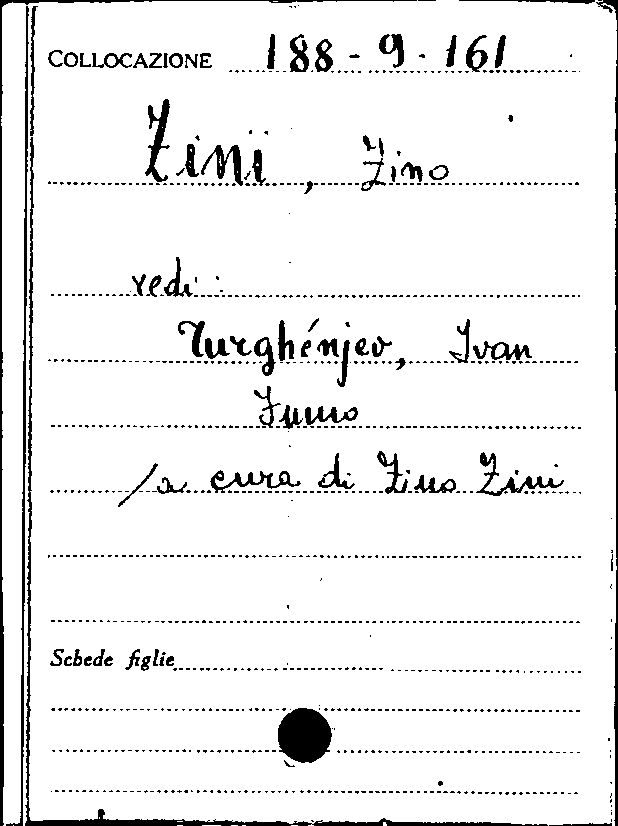 COLLOCAZIONE 188-9-161
Zini, Zino
vedi:
Turghénjev, Ivan
Fumo
/a cura di Zino Zini
Schede figlie